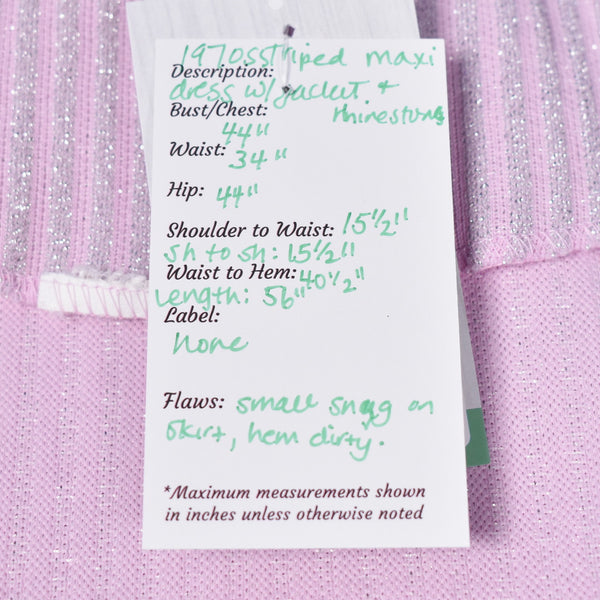 1970s striped maxi
Description:
dress w/ jacket +
rhinestones
Bust/Chest:
44"
Waist: 34"
Hip: 44"
Shoulder to Waist: 15 1/2"
sh to sh: 15 1/2"
Waist to Hem: 40 1/2"
Length: 56"
Label:
None
Flaws: small snag on
skirt, hem dirty.
*Maximum measurements shown
in inches unless otherwise noted